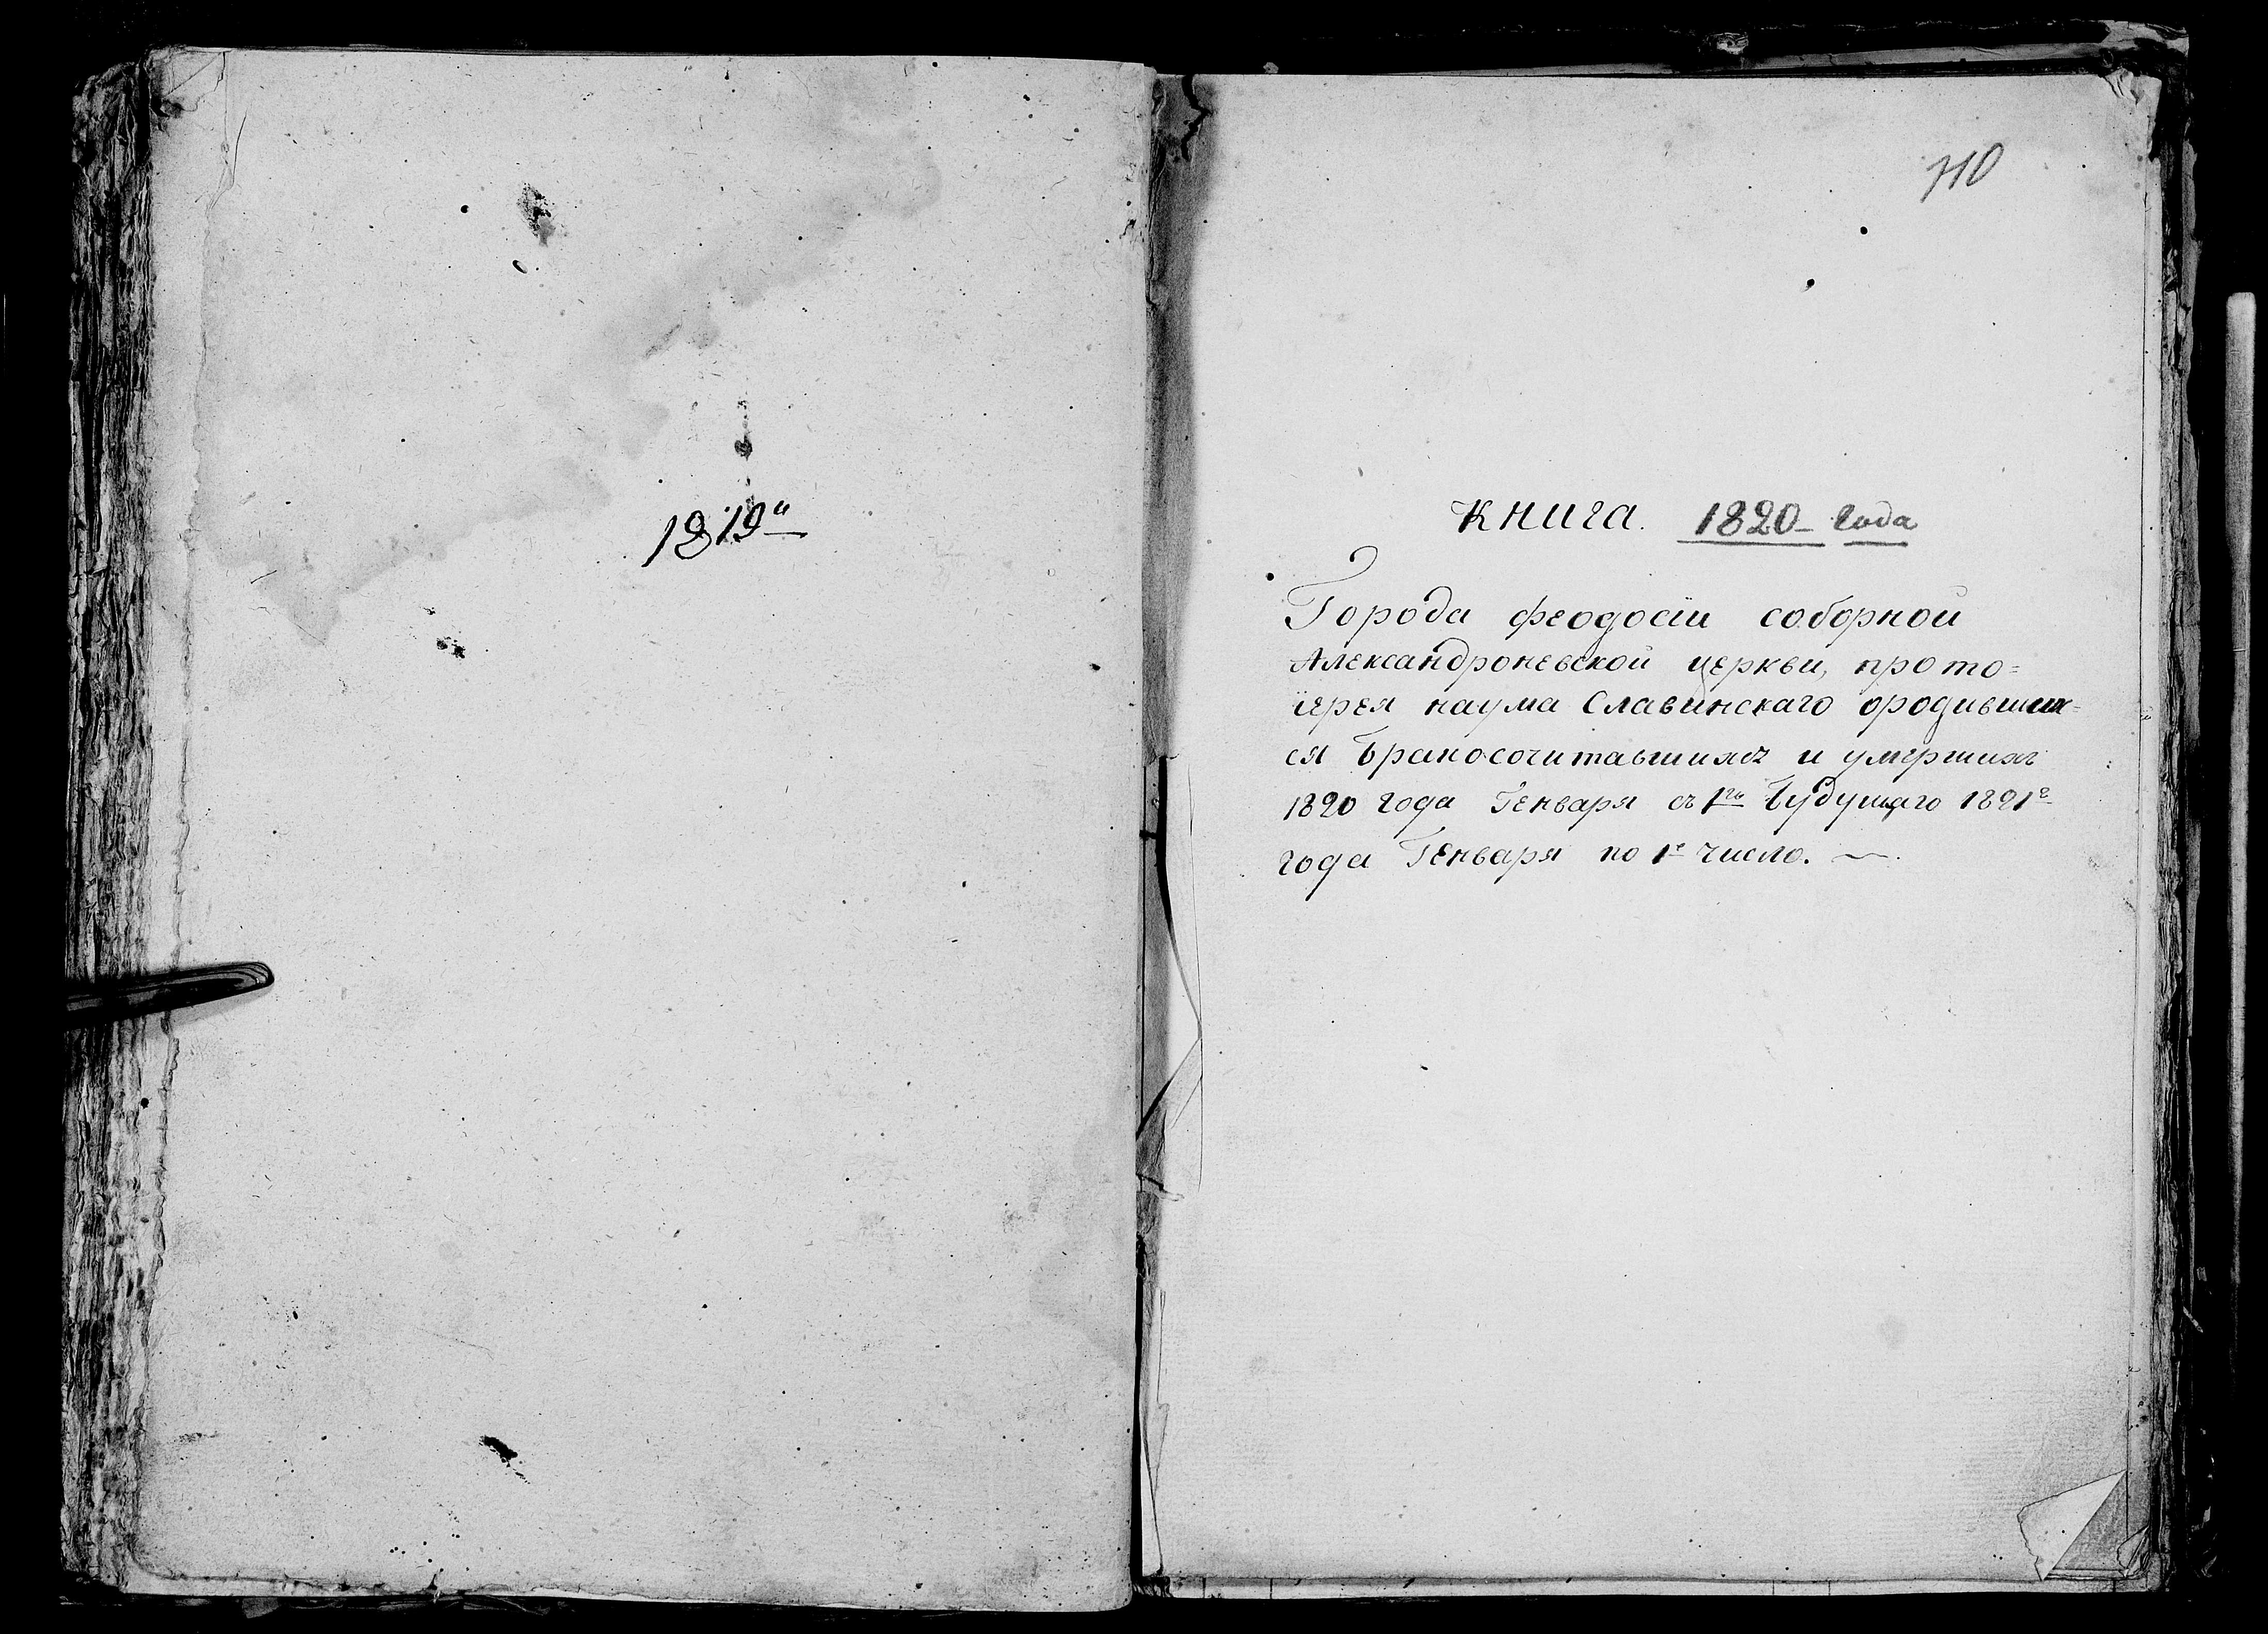 1819й
710
Книга. 1820 – Года
Города Феодосiи соборной
Александроневской церкви, прото=
iерея наума Славинскаго ородивших=
ся Браносочитавшихъ и умершихъ
1820 года Генваря съ 1го будущаго 1821г
года Генваря по 1е число. —